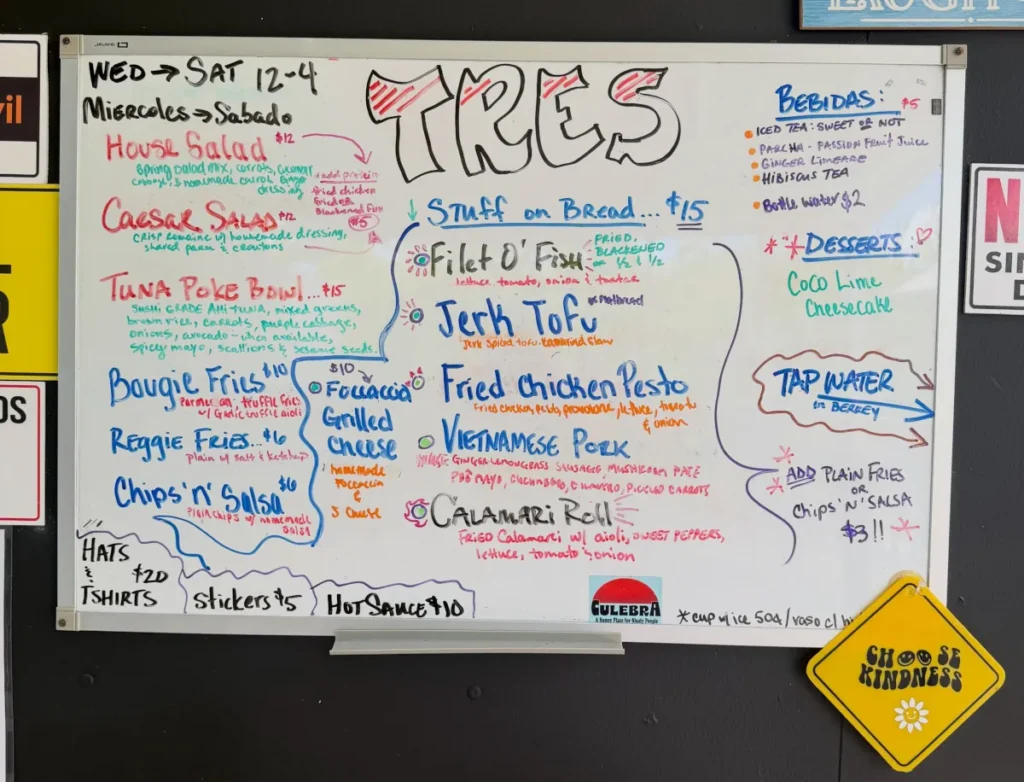 WED → SAT 12-4
MIERCOLES → Sabado
TRES
House Salad $12
Spring salad mix, carrots, cucumber
cabbage, & homemade carrot ginger
dressing
add protein
fried chicken
fried or
Blackened Fish
$5
Caesar Salad $12
crisp romaine w/ homemade dressing,
shared parm & croutons
Tuna Poke Bowl...$15
Sushi GRADE AHI-TUNA, mixed greens,
brown rice, carrots, purple cabbage,
onions, avocado-when available,
spicy mayo, scallions & sesame seeds.
Bougie Fries $10
Parmesan, truffle fries
w/ Garlic truffle aioli
Reggie Fries...$6
plain w/ salt & ketchup
Chips 'n' Salsa $6
Plain chips w/ homemade
salsa
$10
Foccaccia
Grilled
Cheese
homemade
foccaccia
&
3 cheese
↓ Stuff on Bread... $15
Filet O' Fish
FRIED,
BLACKENED
or 1/2 & 1/2
lettuce, tomato, onion &
Jerk Tofu
Jerk spiced tofu, slaw
Fried Chicken Pesto
Fried chicken, pesto, provolone, lettuce, tomato
& onion
Vietnamese Pork
GINGER LEMONGRASS SAUSAGE MUSHROOM PATE
MAYO, CUCUMBER, CILANTRO, PICKLED CARROTS
Calamari Roll
FRIED Calamari w/ aioli, SWEET PEPPERS,
lettuce, tomato & onion
BEBIDAS: $5
ICED TEA: SWEET OR NOT
PARCHA - PASSION FRUIT JUICE
GINGER LIMEADE
HIBISCUS TEA
Bottle water $2
**DESSERTS:
Coco Lime
Cheesecake
TAP WATER
in BERKEY
ADD PLAIN FRIES
OR
CHIPS 'N' SALSA
$3!!
HATS
&
TSHIRTS
$20
Stickers $5
HOT SAUCE $10
CULEBRA
A Sunny Place for Shady People
*cup w/ ice 50¢/vaso c/
CHOOSE
KINDNESS